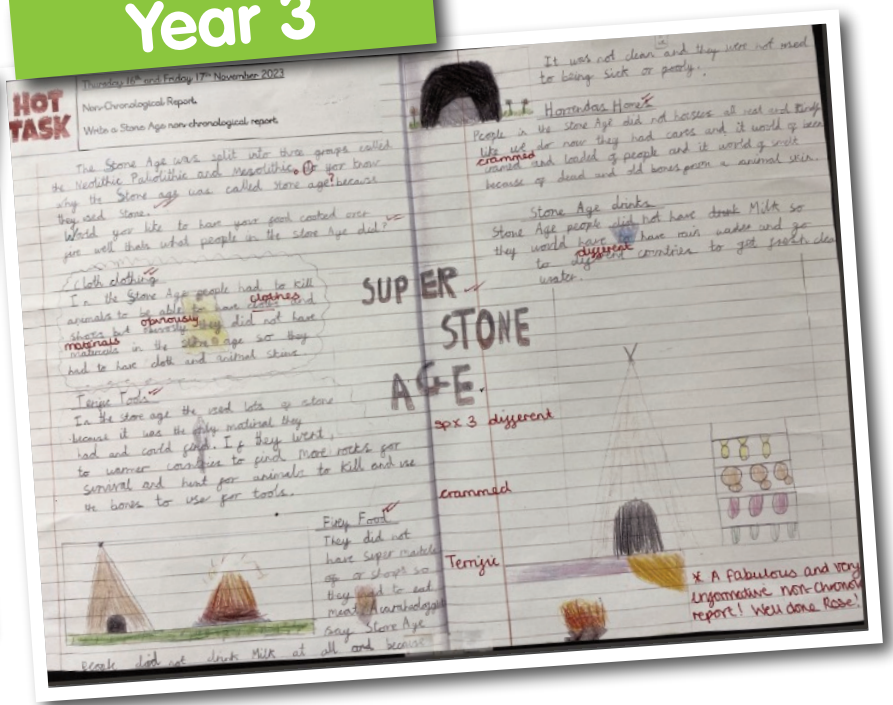 Year 3
HOT
TASK
Thursday 16th and Friday 17th November 2023
Non-Chronological Report.
Write a Stone Age non-chronological report.
The Stone Age was split into three groups called
the Neolithic Paliolithic and Mesolithic. Or yor know
why the Stone age was called stone age? because
they used stone.
Would yor like to have your food cooked over
fire well thats what people in the stone Age did?
Cloth clothing
In the Stone Age people had to kill
clothes
animals to be able to have and
obviously
shoes but they did not have
materials
in the stone age so they
had to have cloth and animal skins
Tools
In the store age the used lots of stone
because it was the only matiral they
had and could find. If they went
to warmer countries to find more rocks for
survival and hunt for animals to kill and use
the bones to use for tools.
Firey Food
They did not
have super markets
or shops so
they had to eat
meat.
say Store Age
People did not drink Milk at all and because
It was not clean and they were not used
to being sick or poorly.
Horrendas Homes
People in the stone Age did not houses at all and
like we do now they had caves and it would of been
crammed
and loaded of people and it world of smelt
because of dead and old bones from a animal skin.
Stone Age drinks
Stone Age people did not have Milk so
they world have to have rain water and go
different
to countries to get fresh clean
water.
SUPER
STONE
AGE.
spx 3 different
crammed
Terrific
* A fabulous and very
informative non-chronol
report! Well done Rose!